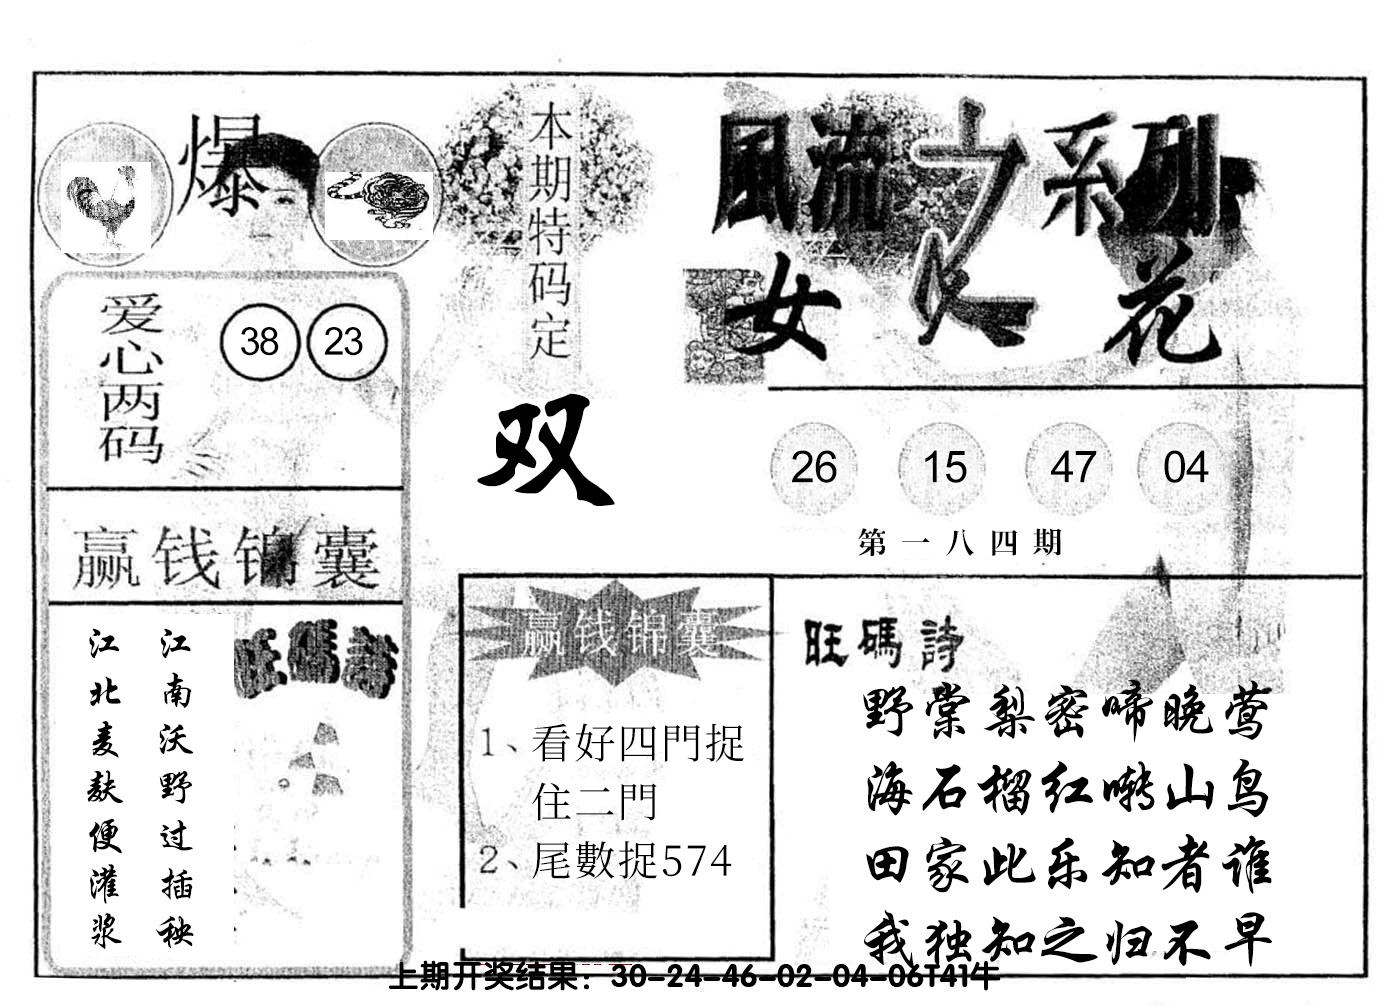 爆
本期特码定
双
風流之系列
女人花
爱心两码
38 23
26 15 47 04
第一八四期
赢钱锦囊
旺碼詩
江南沃野过插秧
江北麦麸便灌浆
赢钱锦囊
1、看好四門捉
住二門
2、尾數捉574
旺碼詩
野棠梨密啼晚莺
海石榴红啭山鸟
田家此乐知者谁
我独知之归不早
上期开奖结果：30-24-46-02-04-06T41牛